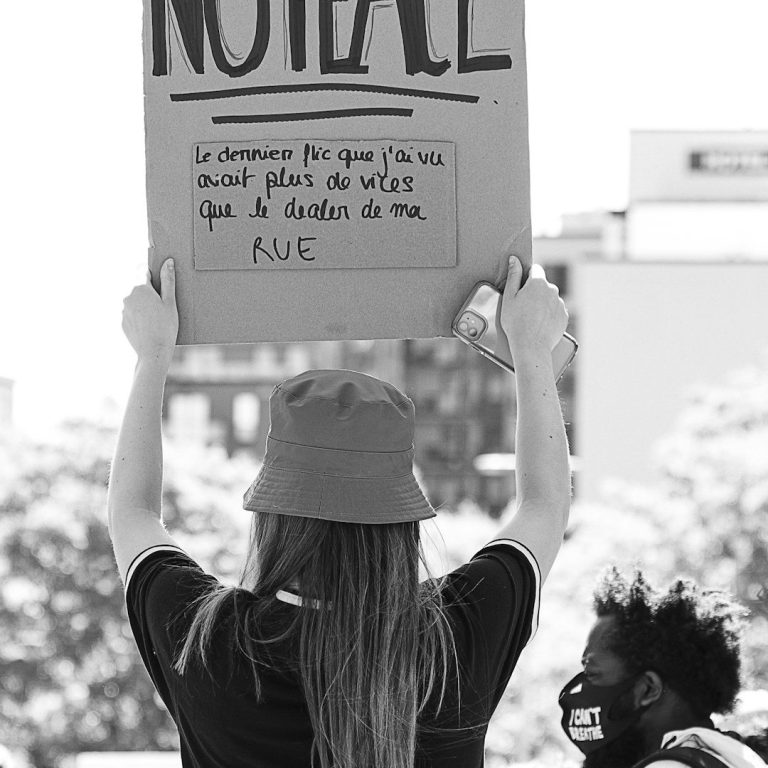 NO PEACE
Le dernier flic que j'ai vu
avait plus de vices
que le dealer de ma
RUE
I CAN'T
BREATHE